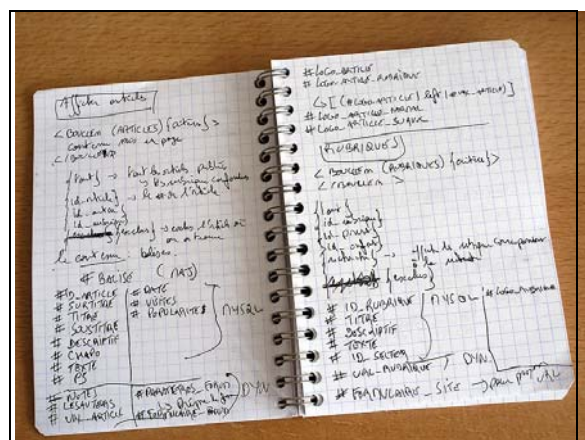 Afficher articles
< BOUCLEn (ARTICLES) {critères} >
contenu mis en page
</BOUCLEn>
{tout} → tout les articles publiés
{id_article} → le
{id_auteur}
{id_rubrique}
{exclus} → exclus l'article où
on se trouve
le contenu: balises.
# BALISE (MAJ)
#ID_ARTICLE
# SURTITRE
# TITRE
# SOUSTITRE
# DESCRIPTIF
# CHAPO
# TEXTE
# PS
# DATE
# VISITES
# POPULARITE
MYSQL
# NOTES
# LESAUTEURS
# URL_ARTICLE
# PARAMETRES_FORUM
# FORMULAIRE_FORUM
DYN
#LOGO_ARTICLE
# LOGO_ARTICLE_RUBRIQUE
↳ [(#LOGO_ARTICLE|left|#URL_ARTICLE)]
# LOGO_ARTICLE_NORMAL
# LOGO_ARTICLE_SURVOL
RUBRIQUES
< BOUCLEn (RUBRIQUES) {critères} >
</BOUCLEn >
{tout}
{id_rubrique}
{id_parent}
{exclus}
# ID_RUBRIQUE
# TITRE
# DESCRIPTIF
# TEXTE
# ID_SECTEUR
MYSQL
# LOGO_RUBRIQUE
# URL_RUBRIQUE
DYN
# FORMULAIRE_SITE → pour
URL